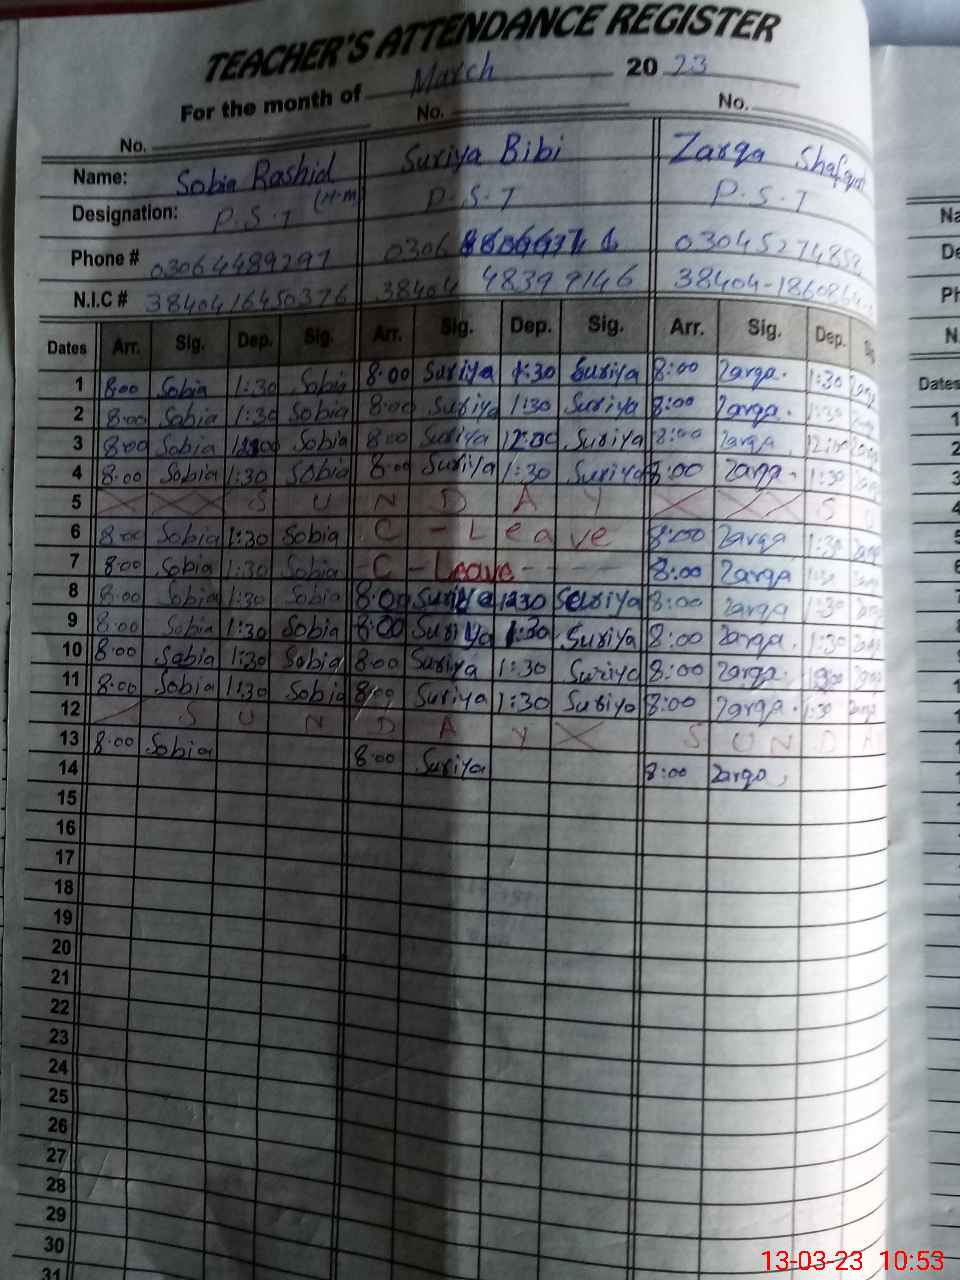 TEACHER'S ATTENDANCE REGISTER
For the month of March 20 23
No. No. No.
Name: Sobia Rashid Suriya Bibi Zarqa Shafqat
Designation: P.S.T (H.m) P.S.T P.S.T
Phone # 03064489297 0306 0304527485
N.I.C # 3840416450376 38404 48399146 38404-18608
Dates Arr. Sig. Dep. Sig. Arr. Sig. Dep. Sig. Arr. Sig. Dep.
1 8:00 Sobia 1:30 Sobia 8:00 Suriya 1:30 Suriya 8:00 Zarqa. 1:30 Zarqa
2 8:00 Sobia 1:30 Sobia 8:00 Suriya 1:30 Suriya 8:00 Zarqa. 1:30 Zarqa
3 8:00 Sobia Sobia 8:00 Suriya 12:00 Suriya 8:00 Zarqa 12:00 Zarqa
4 8:00 Sobia 1:30 Sobia 8:00 Suriya 1:30 Suriya 8:00 Zarqa. 1:30 Zarqa
5 S U N D A Y S U
6 8:00 Sobia 1:30 Sobia C - Leave 8:00 Zarqa 1:30 Zarqa
7 8:00 Sobia 1:30 Sobia C - Leave - - - - 8:00 Zarqa 1:30 Zarqa
8 8:00 Sobia 1:30 Sobia 8:00 Suriya 1:30 Suriya 8:00 Zarqa 1:30 Zarqa
9 8:00 Sobia 1:30 Sobia 8:00 Suriya 1:30 Suriya 8:00 Zarqa. 1:30 Zarqa
10 8:00 Sobia 1:30 Sobia 8:00 Suriya 1:30 Suriya 8:00 Zarqa. Zarqa
11 8:00 Sobia 1:30 Sobia 8:00 Suriya 1:30 Suriya 8:00 Zarqa. 1:30 Zarqa
12 S U N D A Y S U N D A
13 8:00 Sobia 8:00 Suriya 8:00 Zarqa
14
15
16
17
18
19
20
21
22
23
24
25
26
27
28
29
30
31
Dates
1
2
3
4
5
6
7
8
9
10
11
12
13-03-23 10:53